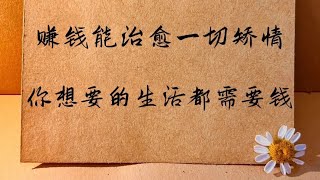 赚钱能治愈一切矫情
你想要的生活都需要钱